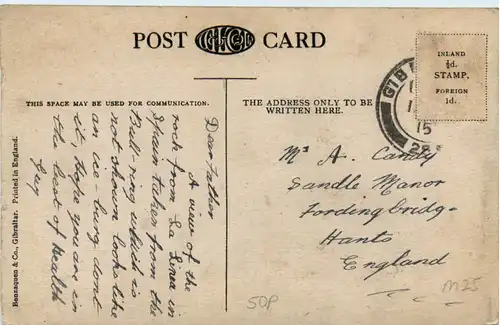 POST CARD
INLAND
½d.
STAMP.
FOREIGN
1d.
GIB
15
THIS SPACE MAY BE USED FOR COMMUNICATION.
THE ADDRESS ONLY TO BE
WRITTEN HERE.
Dear Father
A view of the
rock from La Linea in
Spain taken from the
Bull-ring which is
not shown looks like
an ice-burg dont
it. Hope you are in
the best of health
Guy
Mʳ A. Candy
Sandle Manor
Fordingbridge
Hants
England
Benzaquen & Co., Gibraltar. Printed in England.
50P
M25